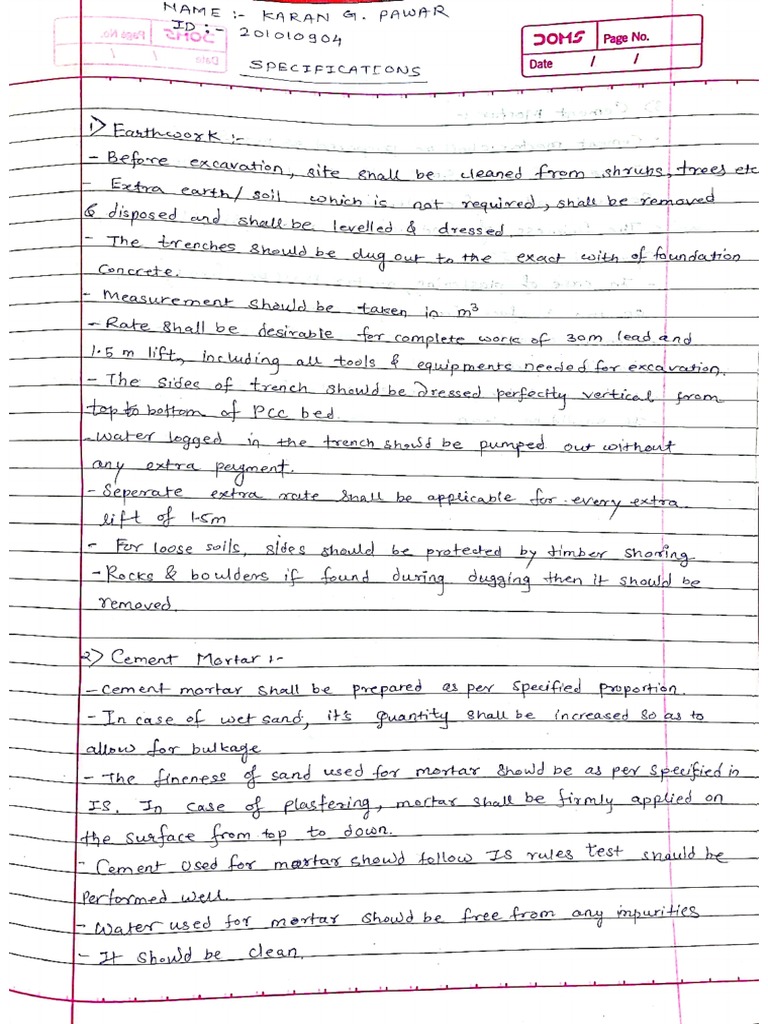 NAME :- KARAN G. PAWAR
ID :- 201010904
DOMS Page No.
Date / /
SPECIFICATIONS
1) Earthwork :-
- Before excavation, site shall be cleaned from shrubs, trees etc
- Extra earth/ soil which is not required, shall be removed
& disposed and shall be levelled & dressed.
- The trenches should be dug out to the exact with of foundation
concrete.
- Measurement should be taken in m³
- Rate shall be desirable for complete work of 30m lead and
1.5 m lift, including all tools & equipments needed for excavation.
- The sides of trench should be dressed perfectly vertical from
top to bottom of PCC bed.
- Water logged in the trench should be pumped out without
any extra payment.
- Seperate extra rate shall be applicable for every extra
lift of 1.5m
- For loose soils, sides should be protected by timber shoring
- Rocks & boulders if found during dugging then it should be
removed.
2) Cement Mortar :-
- Cement mortar shall be prepared as per specified proportion.
- In case of wet sand, it's quantity shall be increased so as to
allow for bulkage
- The fineness of sand used for mortar should be as per specified in
IS. In case of plastering, mortar shall be firmly applied on
the surface from top to down.
- Cement used for mortar should follow IS rules test should be
performed well.
- Water used for mortar should be free from any impurities
- It should be clean.